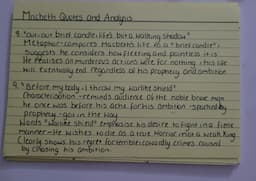 Macbeth Quotes and Analysis
8. "Out, out brief candle life's but a walking shadow"
Metaphor - compares Macbeth's life as a "brief candle" -
Suggests he considers how fleeting and pointless it is
He realises all murderous actions were for nothing, this life
will eventually end regardless of his prophecy and ambition
9. "Before my body I throw my warlike shield"
Characterisation - reminds audience of the noble brave man
he once was before his ache for his ambition - spurred by
prophecy - got in the way
Words "warlike shield" emphasise his desire to fight in a fierce
manner - He wishes to die as a true warrior not a weak king
Clearly shows his regret for terrible cowardly crimes caused
by chasing his ambition